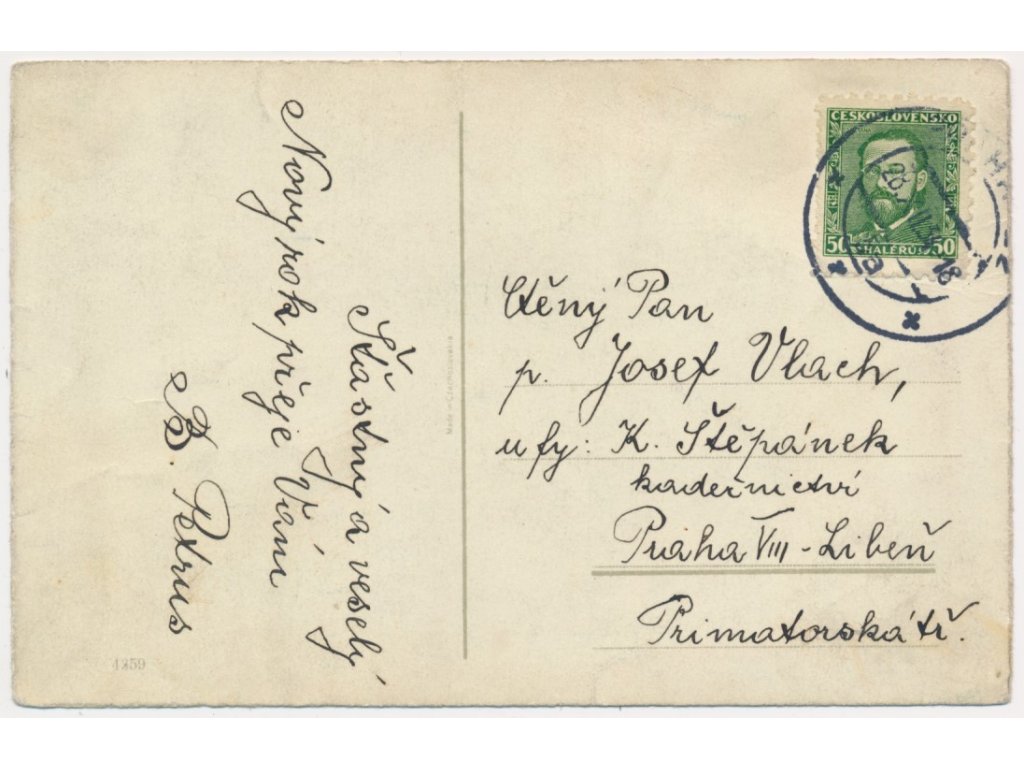 Šťastný a veselý
Nový rok přeje Vám
B. Petrus
4259
Made in Czechoslovakia
ČESKOSLOVENSKO
50 HALÉŘŮ 50
Ctěný Pan
p. Josef Vlach,
u fy: K. Štěpánek
kadeřnictví
Praha VIII - Libeň
Primatorská tř.